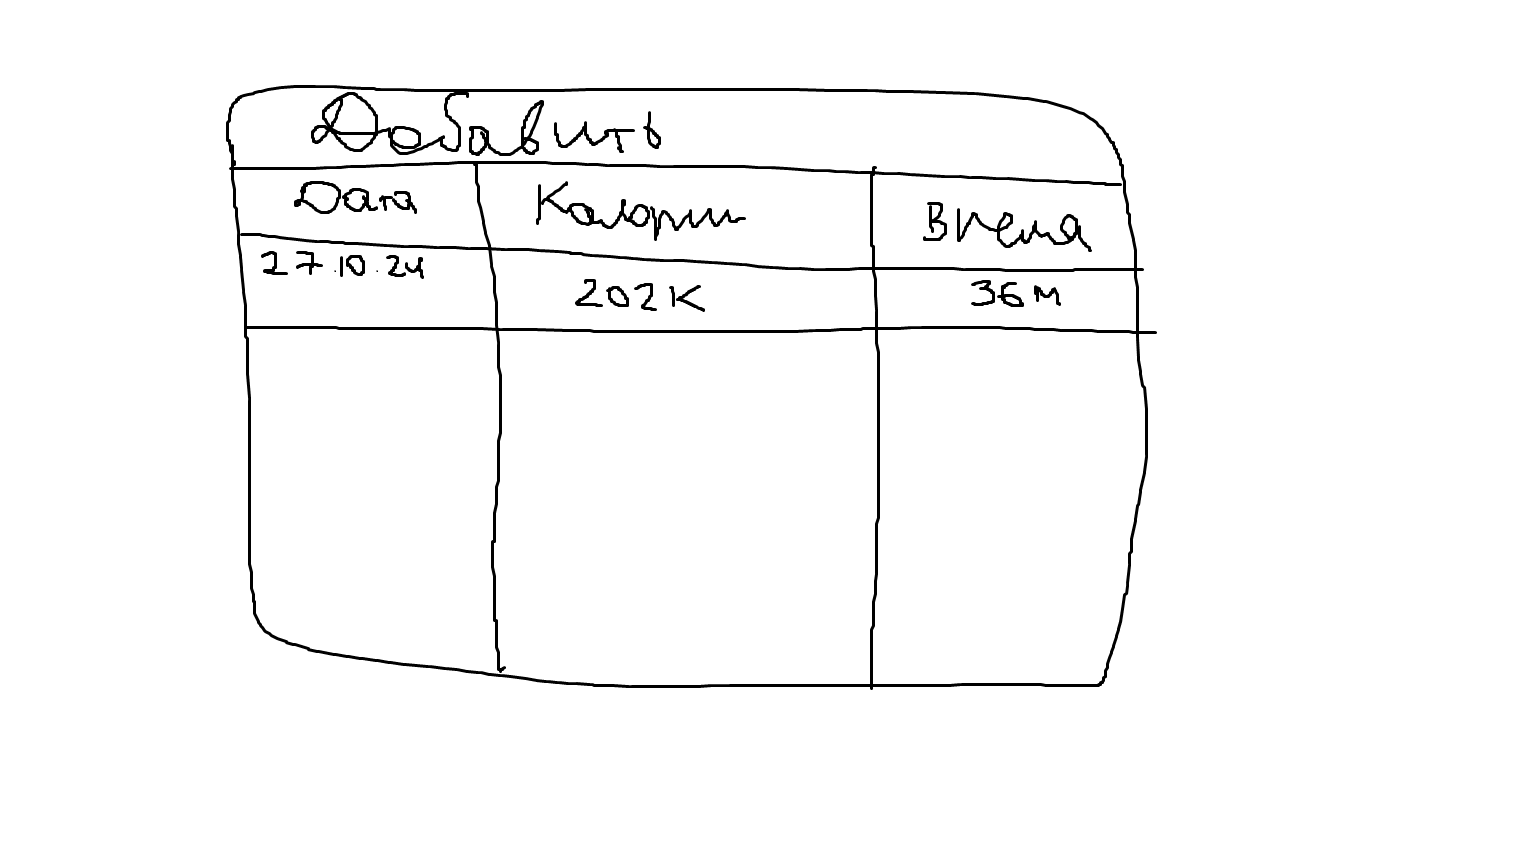 Добавить
Дата Калории Время
27.10.24 202К 36м